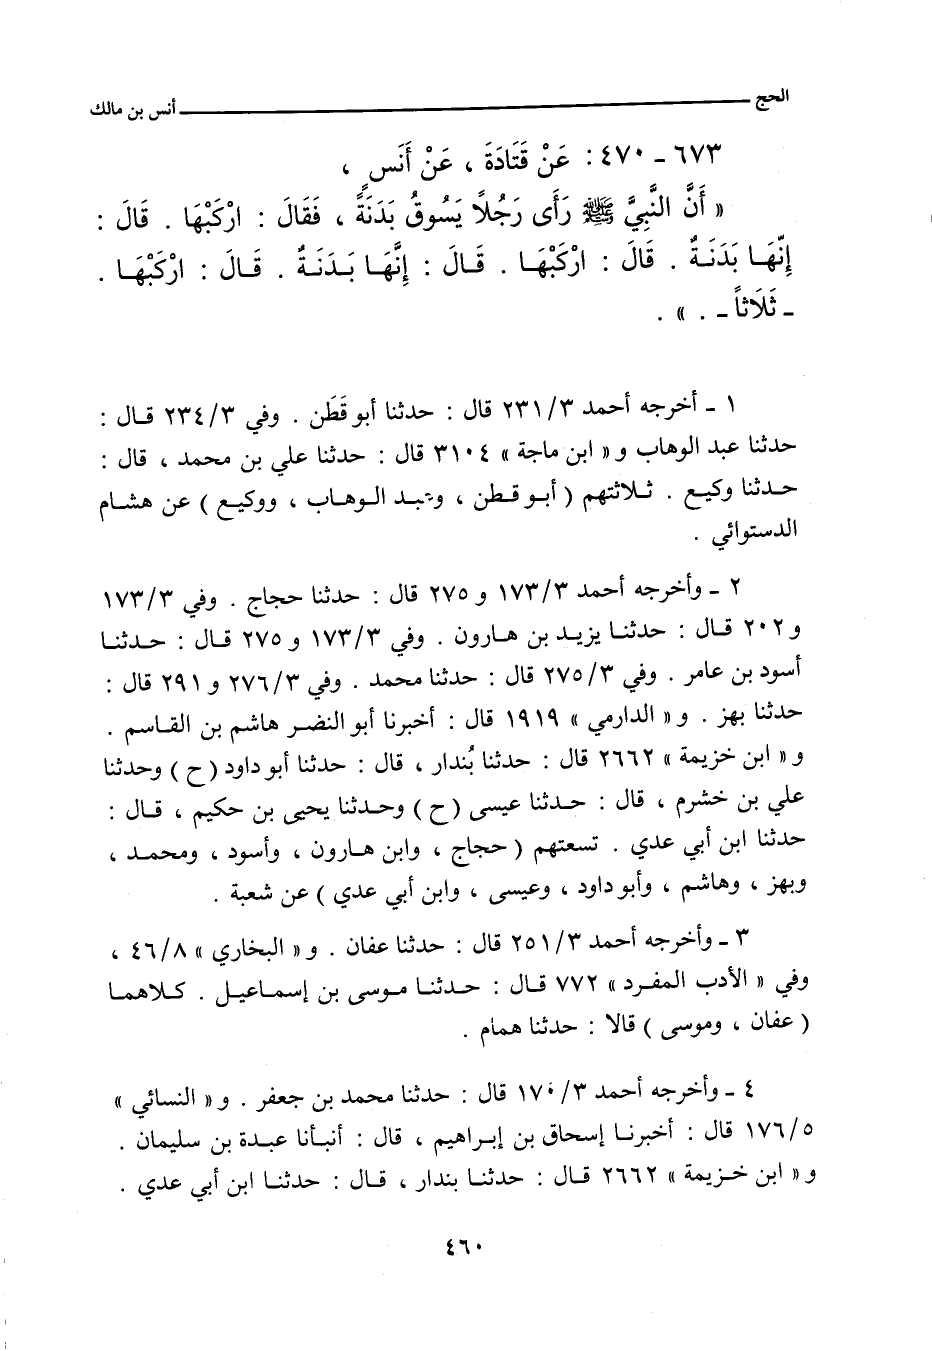 الحج ــــــ أنس بن مالك
٦٧٣ - ٤٧٠ : عَنْ قَتَادَةَ ، عَنْ أَنَسٍ ،
« أَنَّ النَّبِيَّ ﷺ رَأَى رَجُلاً يَسُوقُ بَدَنَةً ، فَقَالَ : ارْكَبْهَا . قَالَ :
إِنَّهَا بَدَنَةٌ . قَالَ : ارْكَبْهَا . قَالَ : إِنَّهَا بَدَنَةٌ . قَالَ : ارْكَبْهَا .
- ثَلَاثاً - . » .
١ - أخرجه أحمد ٢٣١/٣ قال : حدثنا أبو قَطَن . وفي ٢٣٤/٣ قال :
حدثنا عبد الوهاب و« ابن ماجة » ٣١٠٤ قال : حدثنا علي بن محمد ، قال :
حدثنا وكيع . ثلاثتهم ( أبو قطن ، وعبد الوهاب ، ووكيع ) عن هشام
الدستوائي .
٢ - وأخرجه أحمد ١٧٣/٣ و ٢٧٥ قال : حدثنا حجاج . وفي ١٧٣/٣
و ٢٠٢ قال : حدثنا يزيد بن هارون . وفي ١٧٣/٣ و ٢٧٥ قال : حدثنا
أسود بن عامر . وفي ٢٧٥/٣ قال : حدثنا محمد . وفي ٢٧٦/٣ و ٢٩١ قال :
حدثنا بهز . و« الدارمي » ١٩١٩ قال : أخبرنا أبو النضر هاشم بن القاسم .
و« ابن خزيمة » ٢٦٦٢ قال : حدثنا بُندار ، قال : حدثنا أبو داود ( ح ) وحدثنا
علي بن خشرم ، قال : حدثنا عيسى ( ح ) وحدثنا يحيى بن حكيم ، قال :
حدثنا ابن أبي عدي . تسعتهم ( حجاج ، وابن هارون ، وأسود ، ومحمد ،
وبهز ، وهاشم ، وأبو داود ، وعيسى ، وابن أبي عدي ) عن شعبة .
٣ - وأخرجه أحمد ٢٥١/٣ قال : حدثنا عفان . و« البخاري » ٤٦/٨ ،
وفي « الأدب المفرد » ٧٧٢ قال : حدثنا موسى بن إسماعيل . كلاهما
( عفان ، وموسى ) قالا : حدثنا همام .
٤ - وأخرجه أحمد ١٧٠/٣ قال : حدثنا محمد بن جعفر . و« النسائي »
١٧٦/٥ قال : أخبرنا إسحاق بن إبراهيم ، قال : أنبأنا عبدة بن سليمان .
و« ابن خزيمة » ٢٦٦٢ قال : حدثنا بندار ، قال : حدثنا ابن أبي عدي .
٤٦٠